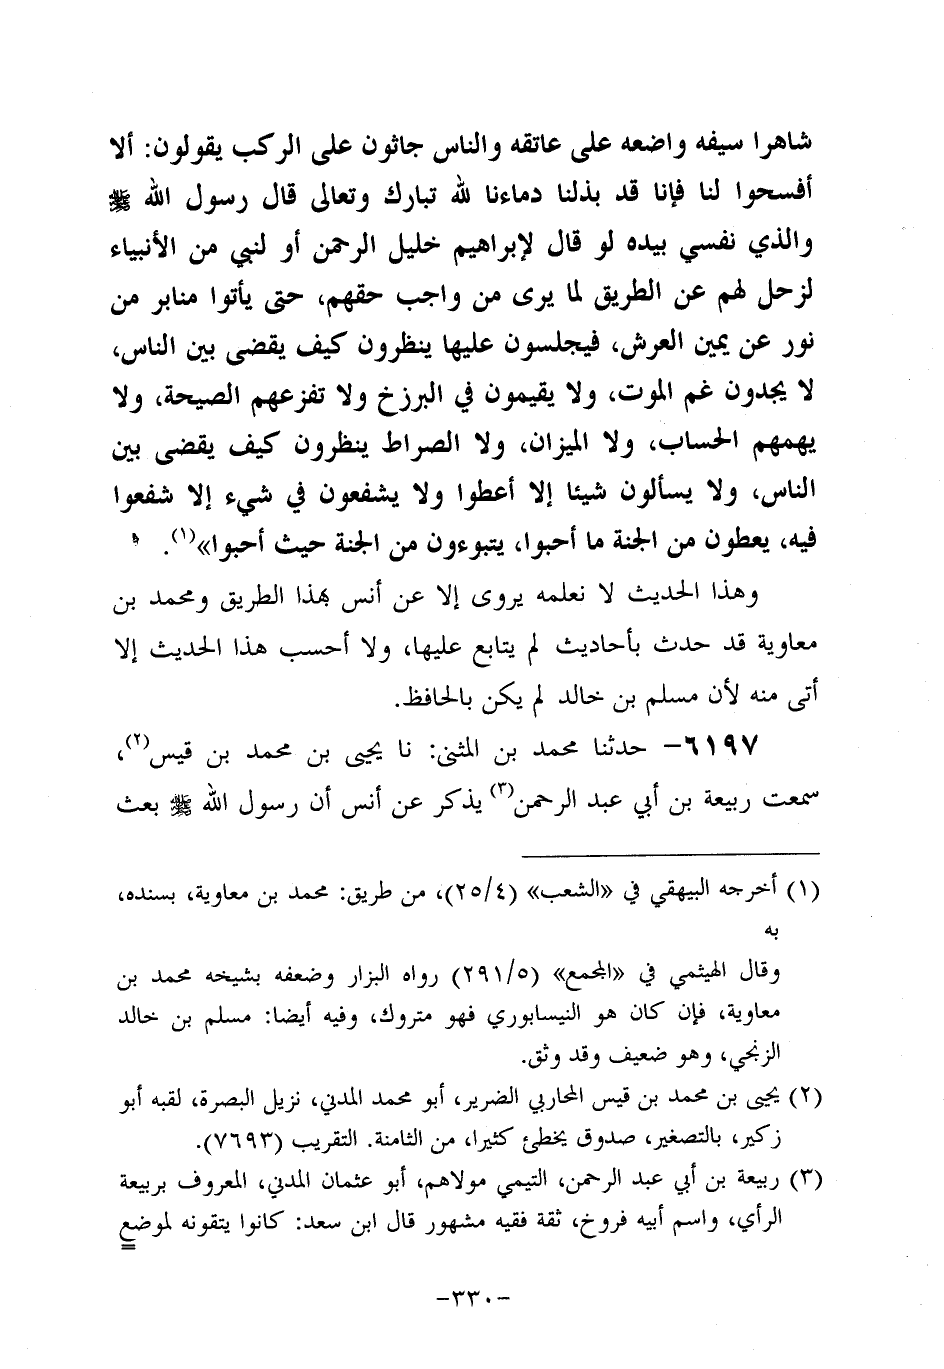 شاهرا سيفه واضعه على عاتقه والناس جاثون على الركب يقولون: ألا
أفسحوا لنا فإنا قد بذلنا دماءنا لله تبارك وتعالى قال رسول الله ﷺ
والذي نفسي بيده لو قال لإبراهيم خليل الرحمن أو لنبي من الأنبياء
لزحل لهم عن الطريق لما يرى من واجب حقهم، حتى يأتوا منابر من
نور عن يمين العرش، فيجلسون عليها ينظرون كيف يقضى بين الناس،
لا يجدون غم الموت، ولا يقيمون في البرزخ ولا تفزعهم الصيحة، ولا
يهمهم الحساب، ولا الميزان، ولا الصراط ينظرون كيف يقضى بين
الناس، ولا يسألون شيئا إلا أعطوا ولا يشفعون في شيء إلا شفعوا
فيه، يعطون من الجنة ما أحبوا، يتبوءون من الجنة حيث أحبوا»(١).
وهذا الحديث لا نعلمه يروى إلا عن أنس بهذا الطريق ومحمد بن
معاوية قد حدث بأحاديث لم يتابع عليها، ولا أحسب هذا الحديث إلا
أتى منه لأن مسلم بن خالد لم يكن بالحافظ.
٦١٩٧- حدثنا محمد بن المثنى: نا يحيى بن محمد بن قيس(٢)،
سمعت ربيعة بن أبي عبد الرحمن(٣) يذكر عن أنس أن رسول الله ﷺ بعث
(١) أخرجه البيهقي في «الشعب» (٢٥/٤)، من طريق: محمد بن معاوية، بسنده،
به
وقال الهيثمي في «المجمع» (٢٩١/٥) رواه البزار وضعفه بشيخه محمد بن
معاوية، فإن كان هو النيسابوري فهو متروك، وفيه أيضا: مسلم بن خالد
الزنجي، وهو ضعيف وقد وثق.
(٢) يحيى بن محمد بن قيس المحاربي الضرير، أبو محمد المدني، نزيل البصرة، لقبه أبو
زكير، بالتصغير، صدوق يخطئ كثيرا، من الثامنة. التقريب (٧٦٩٣).
(٣) ربيعة بن أبي عبد الرحمن، التيمي مولاهم، أبو عثمان المدني، المعروف بربيعة
الرأي، واسم أبيه فروخ، ثقة فقيه مشهور قال ابن سعد: كانوا يتقونه لموضع
=
-٣٣٠-